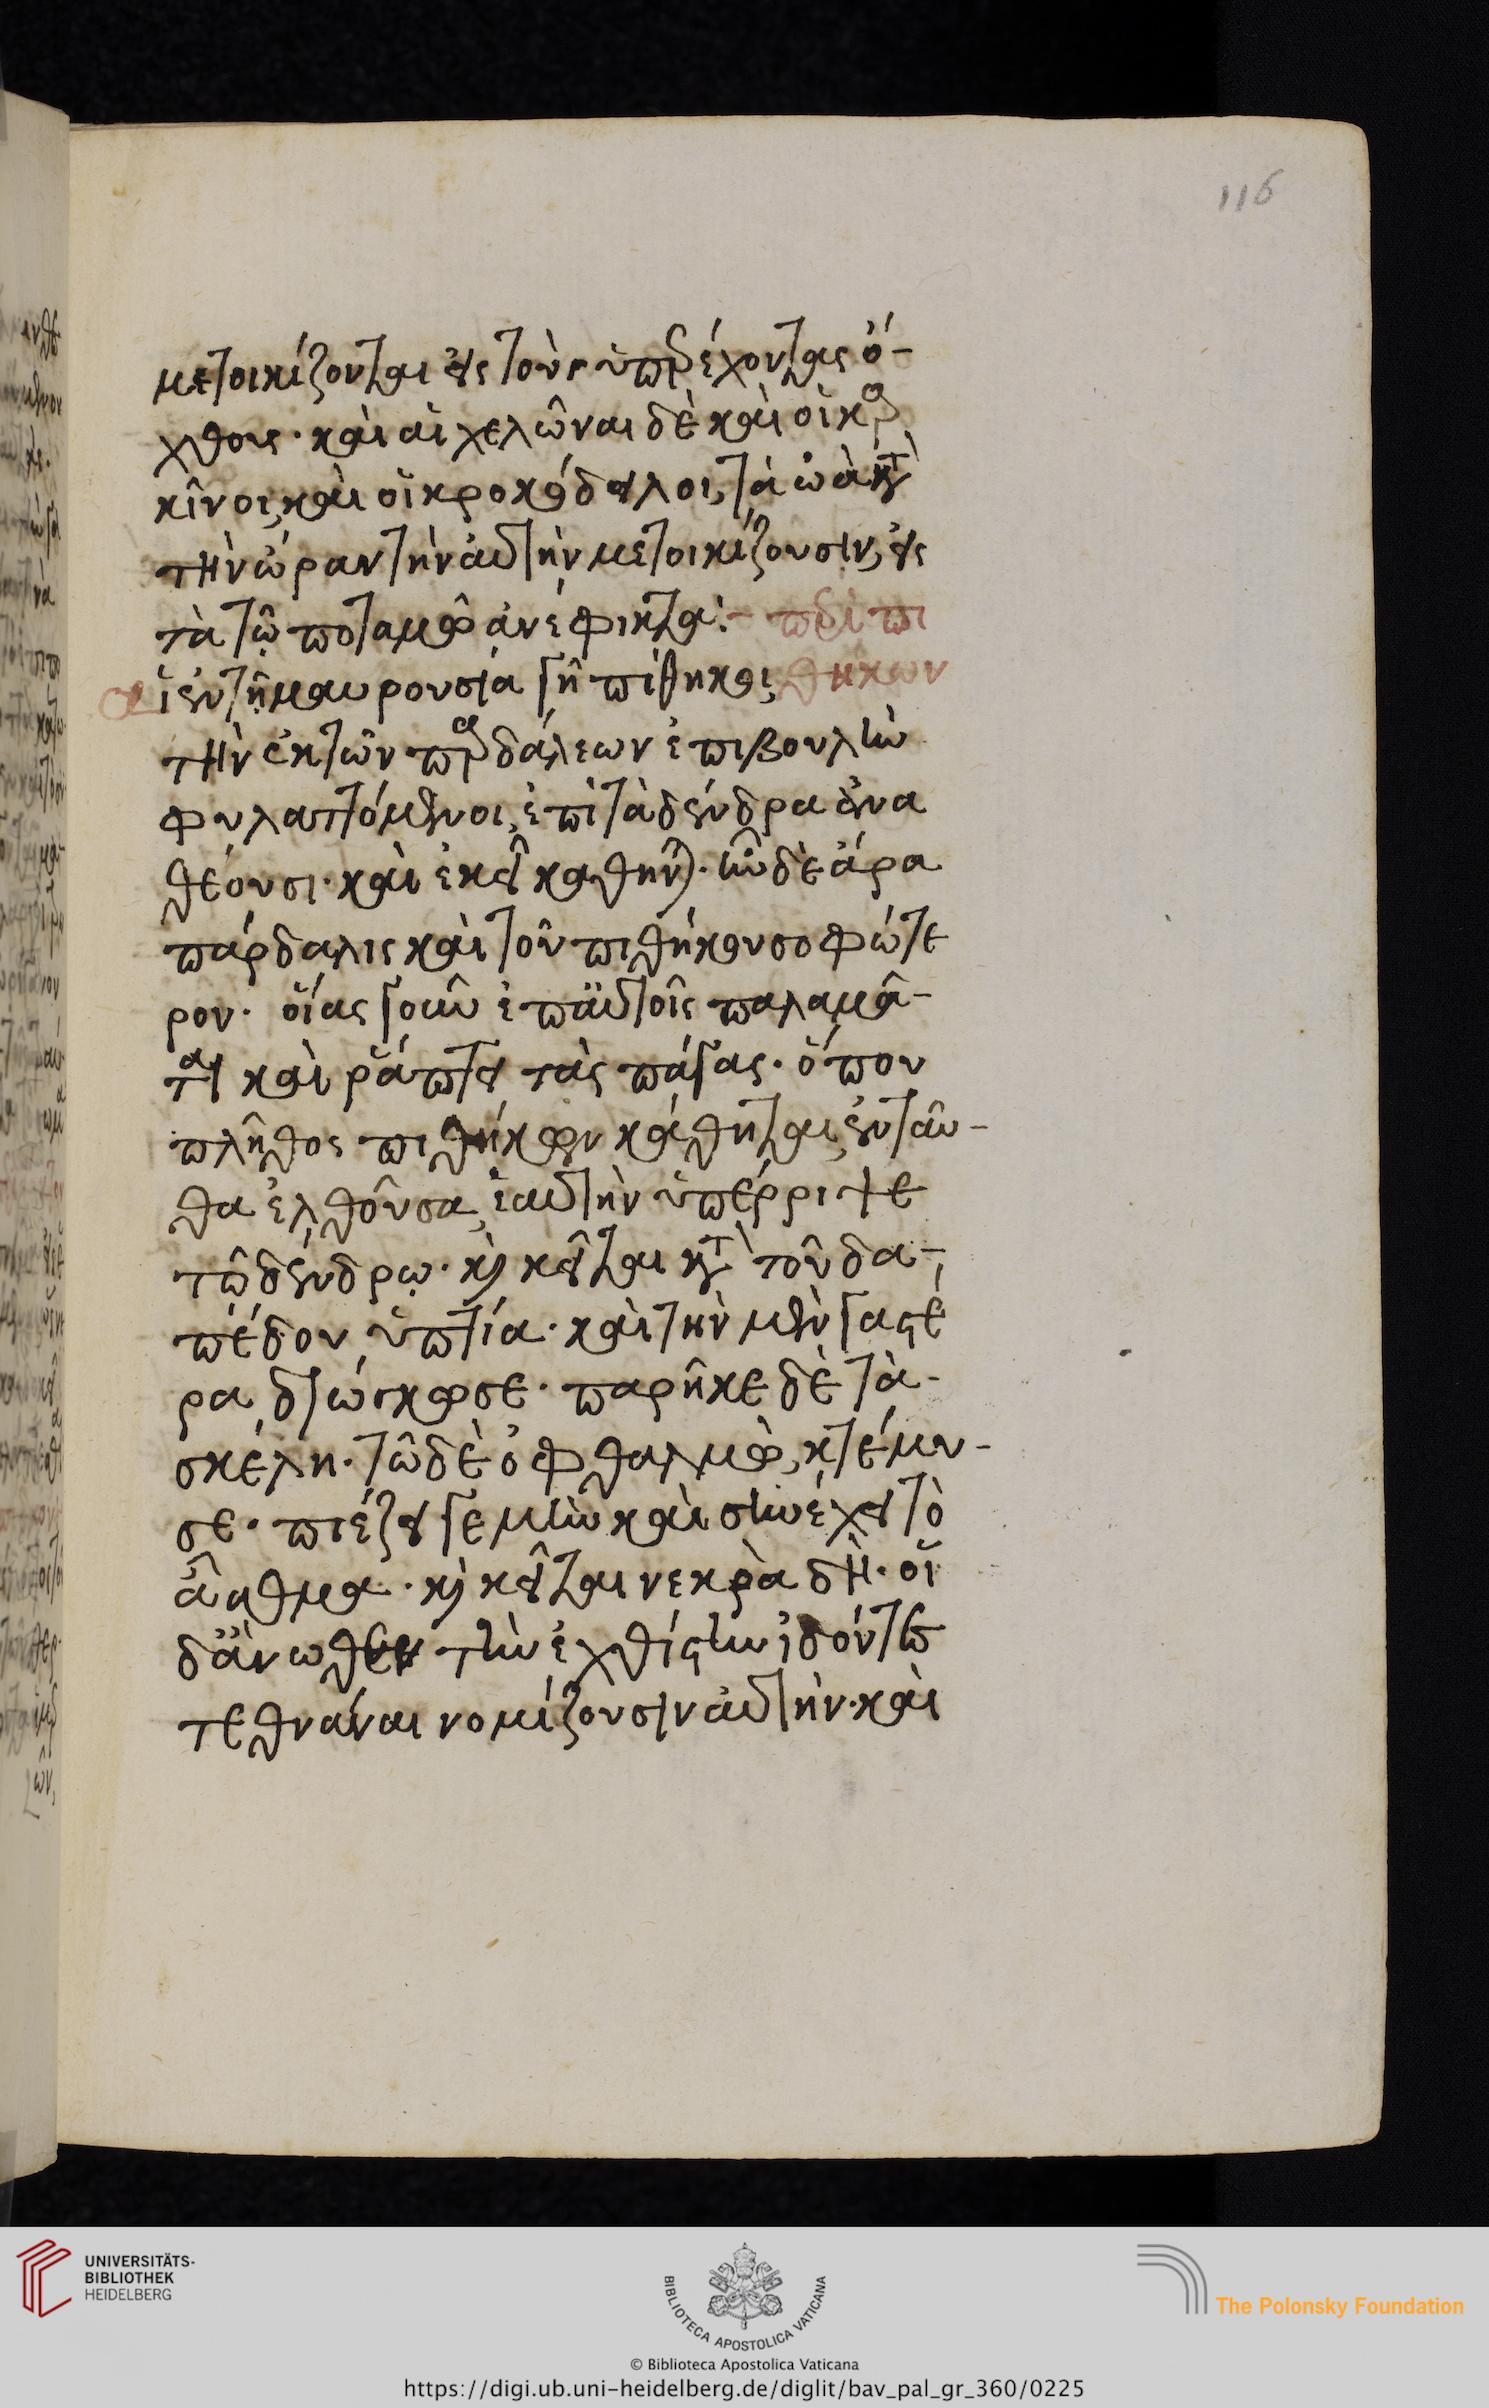 116
μετοικίζονται εἰς τοὺς ὑπερέχοντας ό-
χθους· καὶ αἱ χελῶναι δὲ καὶ οἱ καρ
κῖνοι, καὶ οἱ κροκόδειλοι, τὰ ὠὰ κατὰ
τὴν ὥραν τὴν αὐτὴν μετοικίζουσιν, εἰς
τὰ τῶ ποταμῶ ἀνέφικτα:- περὶ πι
οἱ ἐν τῆ μαυρουσία γῆ πίθηκοι, θήκων
τὴν ἐκ τῶν παρδάλεων ἐπιβουλὴν
φυλαττόμενοι, ἐπὶ τὰ δένδρα ἀνα
θέουσι· καὶ ἐκεῖ κάθηνται· ἦν δὲ ἄρα
πάρδαλις καὶ τοῦ πιθήκου σοφώτε
ρον· οἵας γοῦν ἐπ αὐτοῖς παλαμᾶ-
ται καὶ ῥάπτει τὰς πάγας· ὅπου
πλῆθος πιθήκων κάθηται, ἐνταῦ-
θα ἐλθοῦσα, ἑαυτὴν ὑπέρριψε
τῶ δένδρω· καὶ κεῖται κατὰ τοῦ δα-
πέδου ὑπτία· καὶ τὴν μὲν γαστέ
ρα διώγκωσε· παρῆκε δὲ τὰ-
σκέλη· τὼ δὲ ὀφθαλμὼ, κατέμυ-
σε· πιέζει γε μὴν καὶ συνέχει τὸ
ἆσθμα· καὶ κεῖται νεκρὰ δή· οἱ
δ' ἄνωθεν τὴν ἐχθίστην ἰδόντες
τεθνάναι νομίζουσιν αὐτήν· καὶ
UNIVERSITÄTS-
BIBLIOTHEK
HEIDELBERG
BIBLIOTECA APOSTOLICA VATICANA
The Polonsky Foundation
© Biblioteca Apostolica Vaticana
https://digi.ub.uni-heidelberg.de/diglit/bav_pal_gr_360/0225